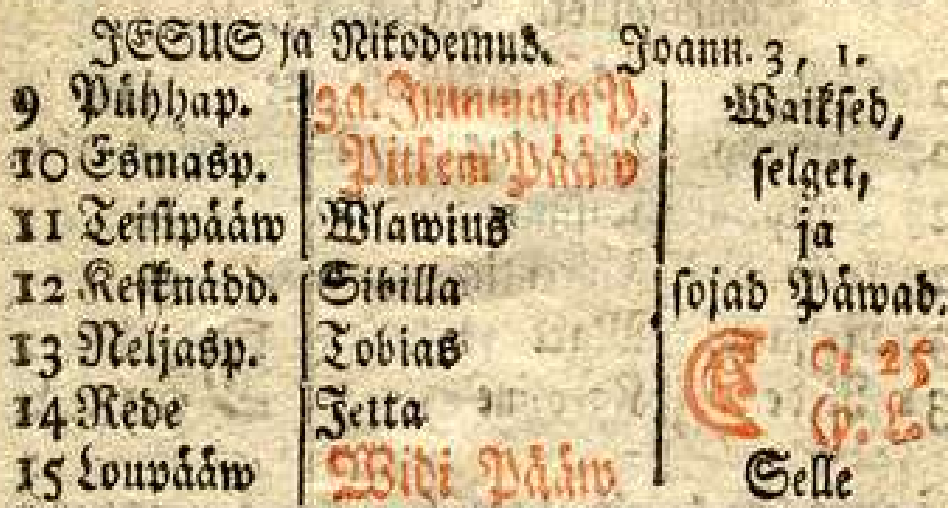 JESUS ja Nikodemus. Joann. 3, 1.
9 Pühhap. 3a. Jummala P. Waiksed,
10 Esmasp. Pitkem Pääw selget,
11 Teisipääw Wlawius ja
12 Kesknädd. Sibilla sojad Päwad.
13 Neljasp. Tobias 25
14 Rede Jetta
15 Loupääw Widi Pääw Selle